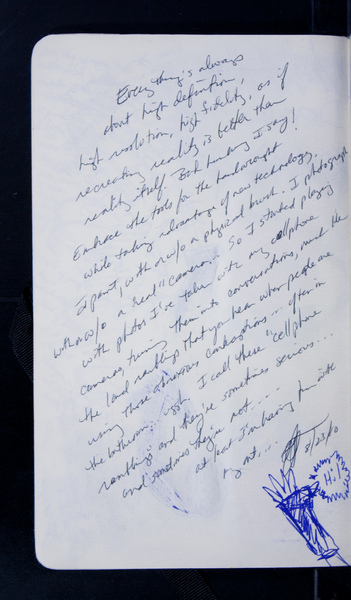 Everything's always
about high definition,
high resolution, high fidelity, as if
recreating reality is better than
reality itself. Bah humbug I say!
Embrace the tools for the handwrought
while taking advantage of new technology.
I paint, with or w/o a physical brush. I photograph
with or w/o a "real" camera. So I started playing
with photos I've taken with my cellphone
camera, turning them into conversations, much like
the loud ramblings that you hear when people are
using those obnoxious contraptions... often in
the bathroom... I call these "cellphone
ramblings" and they're sometimes serious...
and sometimes they're not....
at least I'm having fun with
my art...
8/23/10
Hi!